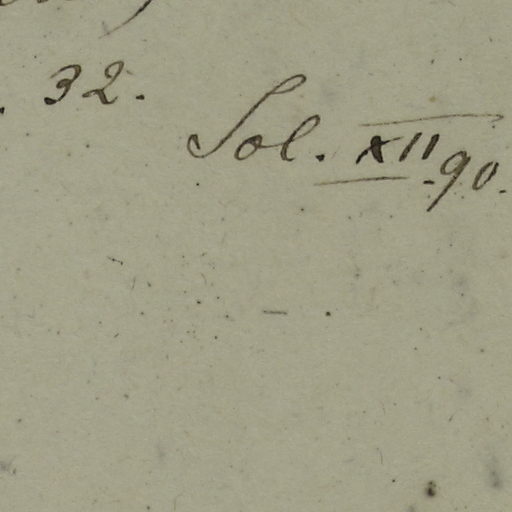 . 32.
Sol. XII 90.